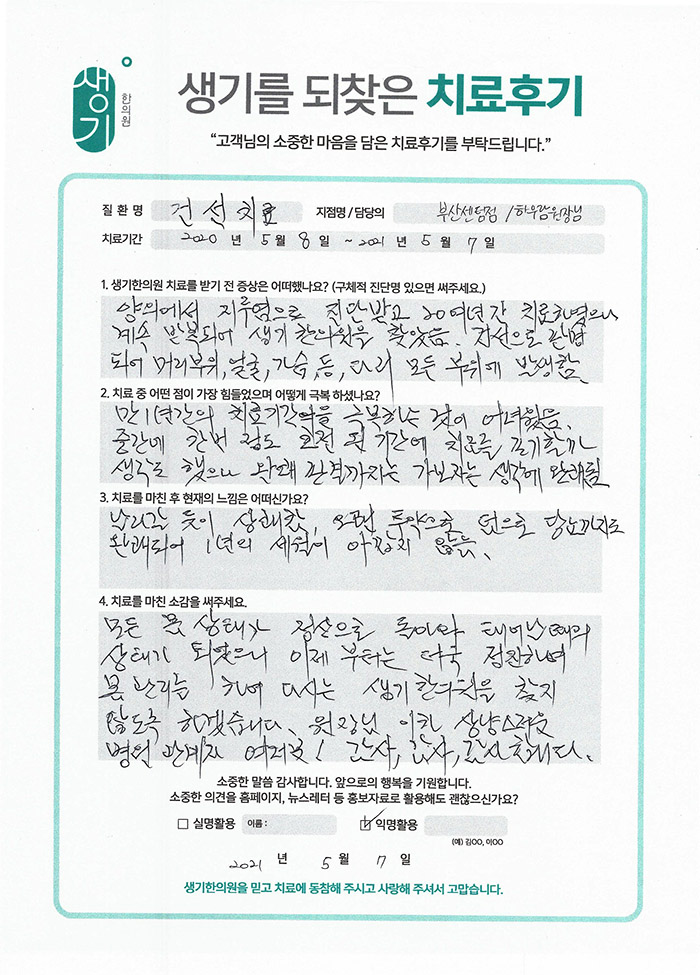 생기
한의원
생기를 되찾은 치료후기
“고객님의 소중한 마음을 담은 치료후기를 부탁드립니다.”
질 환 명 건선치료 지점명 / 담당의 부산센텀점 / 하우람원장님
치료기간 2020 년 5 월 8 일 ~ 2021 년 5 월 7 일
1. 생기한의원 치료를 받기 전 증상은 어떠했나요? (구체적 진단명 있으면 써주세요.)
양의에서 지루염으로 진단받고 20여년간 치료하였으나
계속 반복되어 생기한의원을 찾았음. 건선으로 판명
되어 머리부위, 얼굴, 가슴, 등, 다리 모든 부위에 발생함.
2. 치료 중 어떤 점이 가장 힘들었으며 어떻게 극복 하셨나요?
만 1년간의 치료기간을 극복하는 것이 어려웠음.
중간에 한번 정도 호전 된 기간에 치료를 포기할까
생각도 했으나 완쾌 단계까지는 가보자는 생각에 완쾌됨
3. 치료를 마친 후 현재의 느낌은 어떠신가요?
날라갈 듯이 상쾌함, 오랜 투약으로 덤으로 당뇨까지도
완쾌되어 1년의 세월이 아깝지 않음.
4. 치료를 마친 소감을 써주세요.
모든 몸 상태가 정상으로 돌아와 태어날때의
상태가 되었으니 이제 부터는 더욱 정진하여
몸 관리를 하여 다시는 생기한의원을 찾지
않도록 하겠습니다. 원장님 이하 상냥스러운
병원 관계자 여러분! 감사, 감사, 감사 드립니다.
소중한 말씀 감사합니다. 앞으로의 행복을 기원합니다.
소중한 의견을 홈페이지, 뉴스레터 등 홍보자료로 활용해도 괜찮으신가요?
실명활용 이름 : 익명활용
(예) 김OO, 이OO
2021 년 5 월 7 일
생기한의원을 믿고 치료에 동참해 주시고 사랑해 주셔서 고맙습니다.